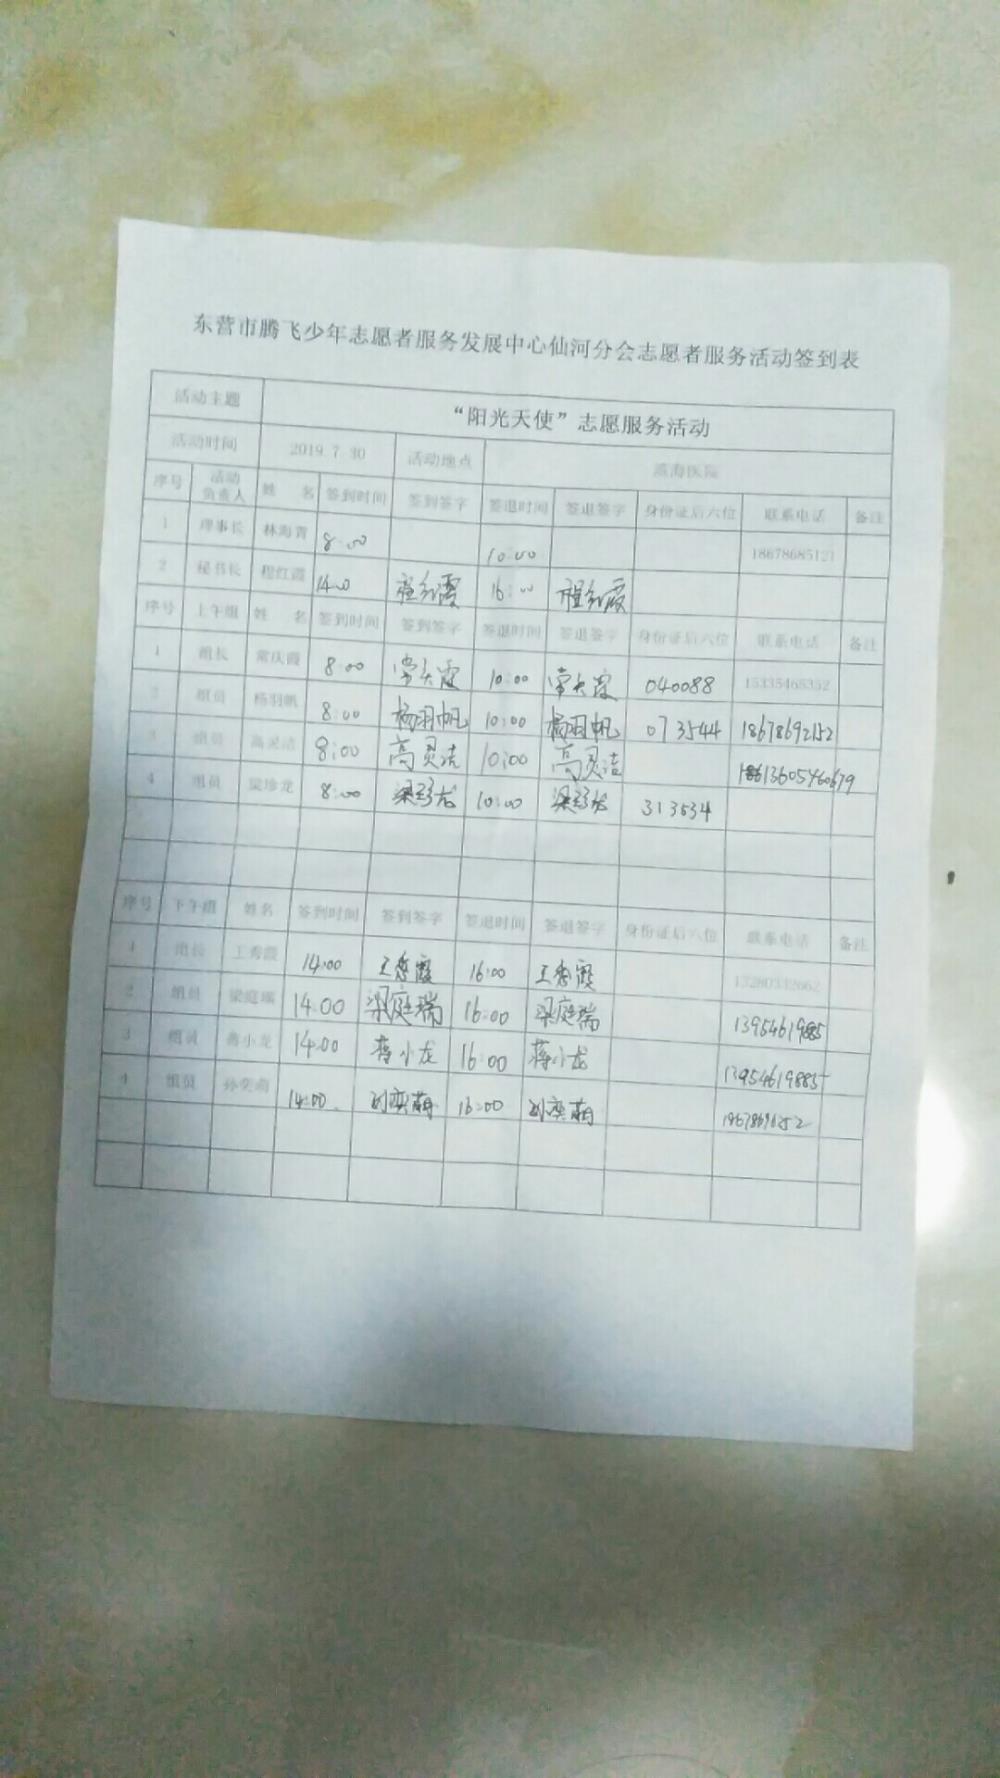 东营市腾飞少年志愿者服务发展中心仙河分会志愿者服务活动签到表
活动主题 “阳光天使”志愿服务活动
活动时间 2019.7.30 活动地点 滨海医院
序号 活动负责人 姓 名 签到时间 签到签字 签退时间 签退签字 身份证后六位 联系电话 备注
1 理事长 林海青 8:00 10:00 18678685121
2 秘书长 程红霞 14:00 程红霞 16:00 程红霞
序号 上午组 姓 名 签到时间 签到签字 签退时间 签退签字 身份证后六位 联系电话 备注
1 组长 常庆霞 8:00 常庆霞 10:00 常庆霞 040088 15335465352
2 组员 杨羽帆 8:00 杨羽帆 10:00 杨羽帆 073544 18678692152
3 组员 高灵洁 8:00 高灵洁 10:00 高灵洁
4 组员 梁珍龙 8:00 梁珍龙 10:00 梁珍龙 313534
序号 下午组 姓名 签到时间 签到签字 签退时间 签退签字 身份证后六位 联系电话 备注
1 组长 王秀霞 14:00 王秀霞 16:00 王秀霞
2 组员 梁庭瑞 14:00 梁庭瑞 16:00 梁庭瑞 13954619885
3 组员 蒋小龙 14:00 蒋小龙 16:00 蒋小龙 13954619885
4 组员 孙奕萌 14:00 孙奕萌 16:00 孙奕萌